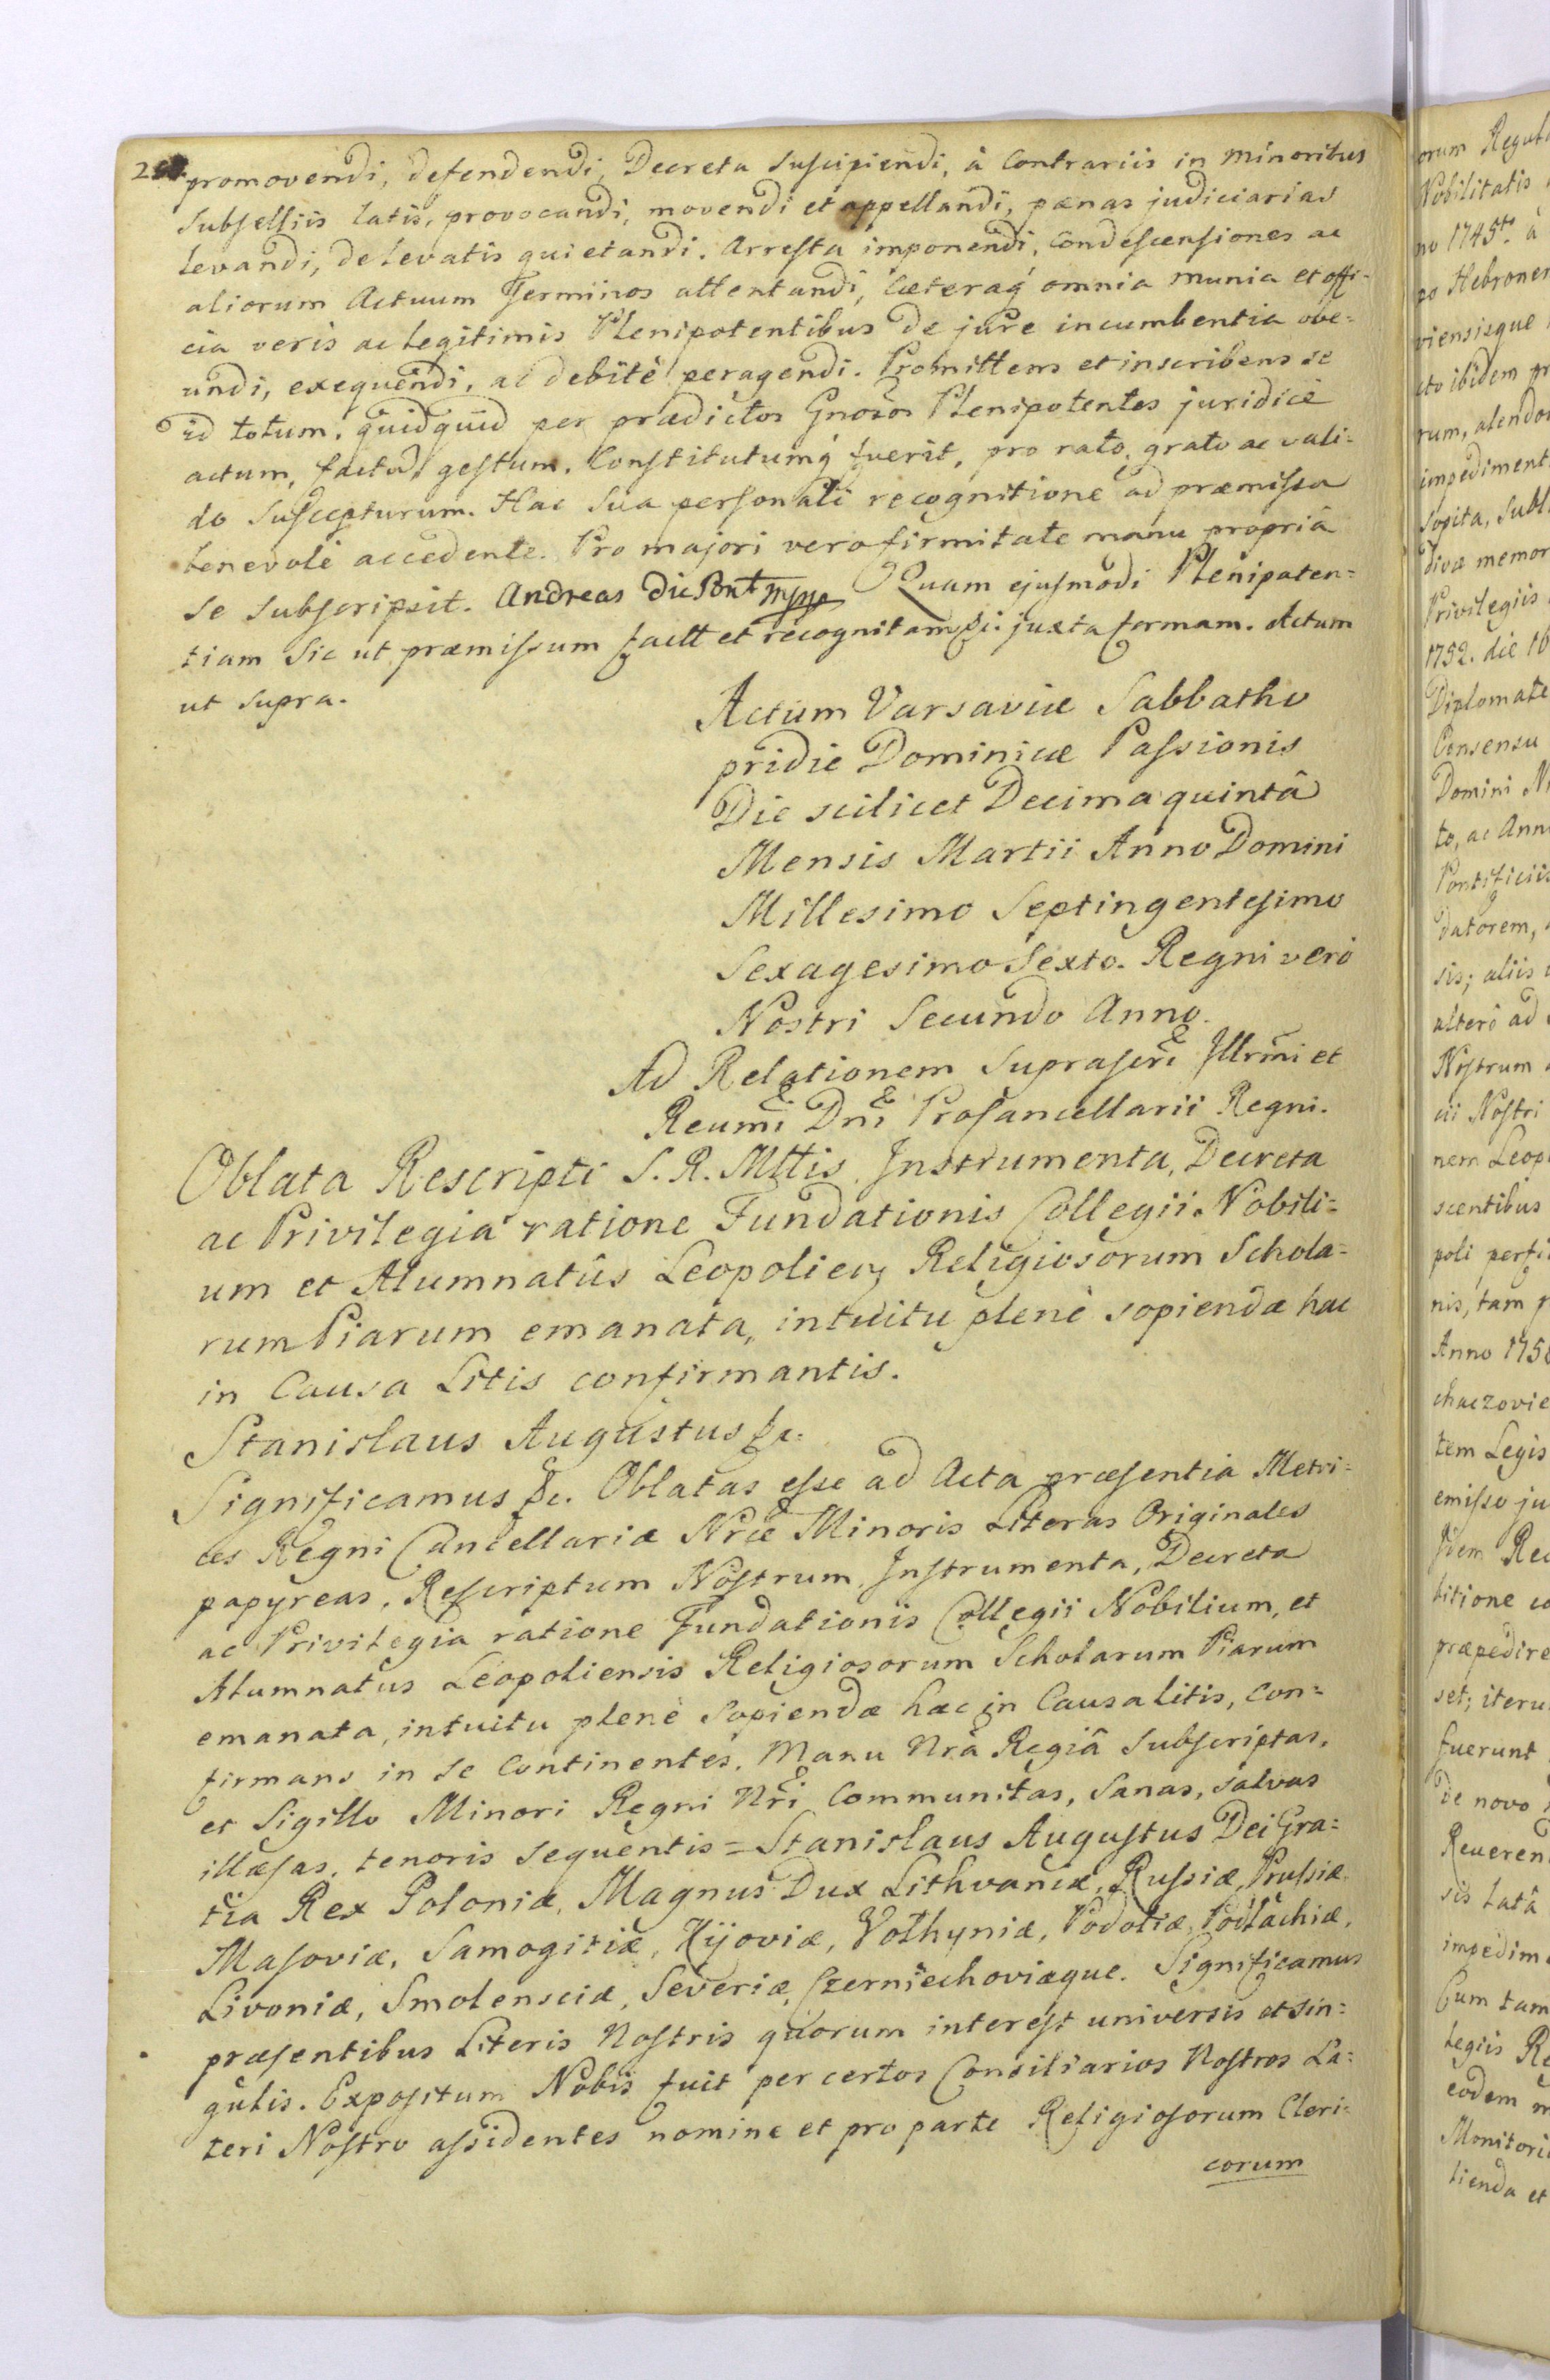 promovendi, defendendi, Decreta suscipiendi, à Contrariis in Minoribus
Subselliis latis, provocandi, movendi et appellandi, pænas judiciarias
levandi, de levatis quietandi. Arresta imponendi, Condescensiones ac
aliorum Actuum Terminos attentandi, Cæteraq́ omnia munia et offi-
cia veris ac legitimis Plenipotentibus de jure incumbentia obe=
undi, exequendi, ac debitè peragendi. Promittens et inscribens se
id totum, quidquid per prædictos Gnosos Plenipotentes juridicè
actum, factũ, gestum, Constitutumq́ fuerit, pro rato, grato ac vali=
do Suscepturum. Hac Sua personali recognitione ad præmissa
benevolè accedente. Pro majori vero firmitate manu propriâ
se subscripsit. Andreas du Pont mppa Quam ejusmodi Plenipoten=
tiam Sic ut præmissum factt et recognitam &c: juxta formam. Actum
ut supra.
Actum Varsaviæ Sabbatho
pridie Dominicæ Passionis
Die scilicet Decima quintâ
Mensis Martii Anno Domini
Millesimo Septingentesimo
Sexagesimo Sexto. Regni verò
Nostri Secundo Anno.
Ad Relationem Suprascri Illrmi et
Reumi Dni Procancellarii Regni.
Oblata Rescripti S. R. Mttis, Instrumenta, Decreta
ac Privilegia ratione Fundationis Collegii Nobili=
um et Alumnatûs Leopolien Religiosorum Schola=
rum Piarum emanata, intuitu plenè sopiendæ hac
in Causa Litis confirmantis.
Stanislaus Augustus &c.
Significamus &c. Oblatas esse ad Acta præsentia Metri=
ces Regni Cancellariæ Nræ Minoris Literas Originales
papyreas, Rescriptum Nostrum, Instrumenta, Decreta
ac Privilegia ratione Fundationis Collegii Nobilium, et
Alumnatus Leopoliensis Religiosorum Scholarum Piarum
emanata, intuitu plenè Sopiendæ hac in Causa litis, con=
firmans in se Continentes, Manu Nrâ Regiâ Subscriptas,
et Sigillo Minori Regni Nri Communitas, Sanas, Salvas
illæsas, tenoris sequentis = Stanislaus Augustus Dei Gra=
tia Rex Poloniæ, Magnus Dux Lithvaniæ, Russiæ, Prussiæ,
Masoviæ, Samogitiæ, Kijoviæ, Volhyniæ, Podoliæ, Podlachiæ,
Livoniæ, Smolensciæ, Severiæ, Czerniechoviæque. Significamus
præsentibus Literis Nostris quorum interest universis et sin=
gulis. Expositum Nobis fuit per certos Consiliarios Nostros La=
teri Nostro assidentes nomine et pro parte Religiosorum Cleri=
corum
orum
Nobilitatis
no 1745to. à
po Hebronen
viensisque
cto ibidem
rum, alendo
impediment
sopita, subl
divæ memor
Privilegiis
1752. die 10
Diplomate
Consensu
Domini
to, ac Ann
Pontificiis
datorem,
sis; aliis
alterò ad
Nostrum
cii Nostri
nem Leop
scentibus
poli
nis, tam
Anno 175
chaczovie
tem Legis
emisso ju
litione
præpedire
set; iteru
fuerunt
de novo
Reueren
sis latâ
impedim
Cum tam
legiis
eodem
Monitori
tienda et